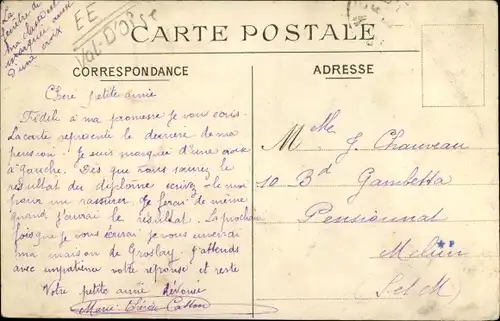 La
fenêtre de
ma chambre est
marquée aussi
d'une croix
EE
Val-D'Oise
CARTE POSTALE
CORRESPONDANCE
ADRESSE
Chère petite amie
Fidèle à ma promesse je vous écris.
La carte représente le derrière de ma
pension. Je suis marquée d'une croix
à gauche. Dès que vous saurez le
résultat du diplôme écrivez-le moi
pour me rassurer. Je ferai de même
quand j'aurai le résultat. La prochaine
fois que je vous écrirai je vous enverrai
ma maison de Groslay. J'attends
avec impatience votre réponse et reste
Votre petite amie dévouée
Marie-Thérèse
Melle J. Chauveau
10 Bd Gambetta
Pensionnat
Melun
(S et M)